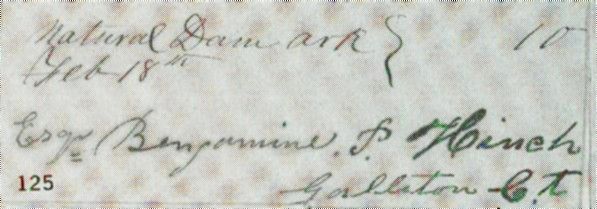 Natural Dam ark } 10
Feb 18th
Esqr Benjamine. P. Hinch
125
Galleton C.t